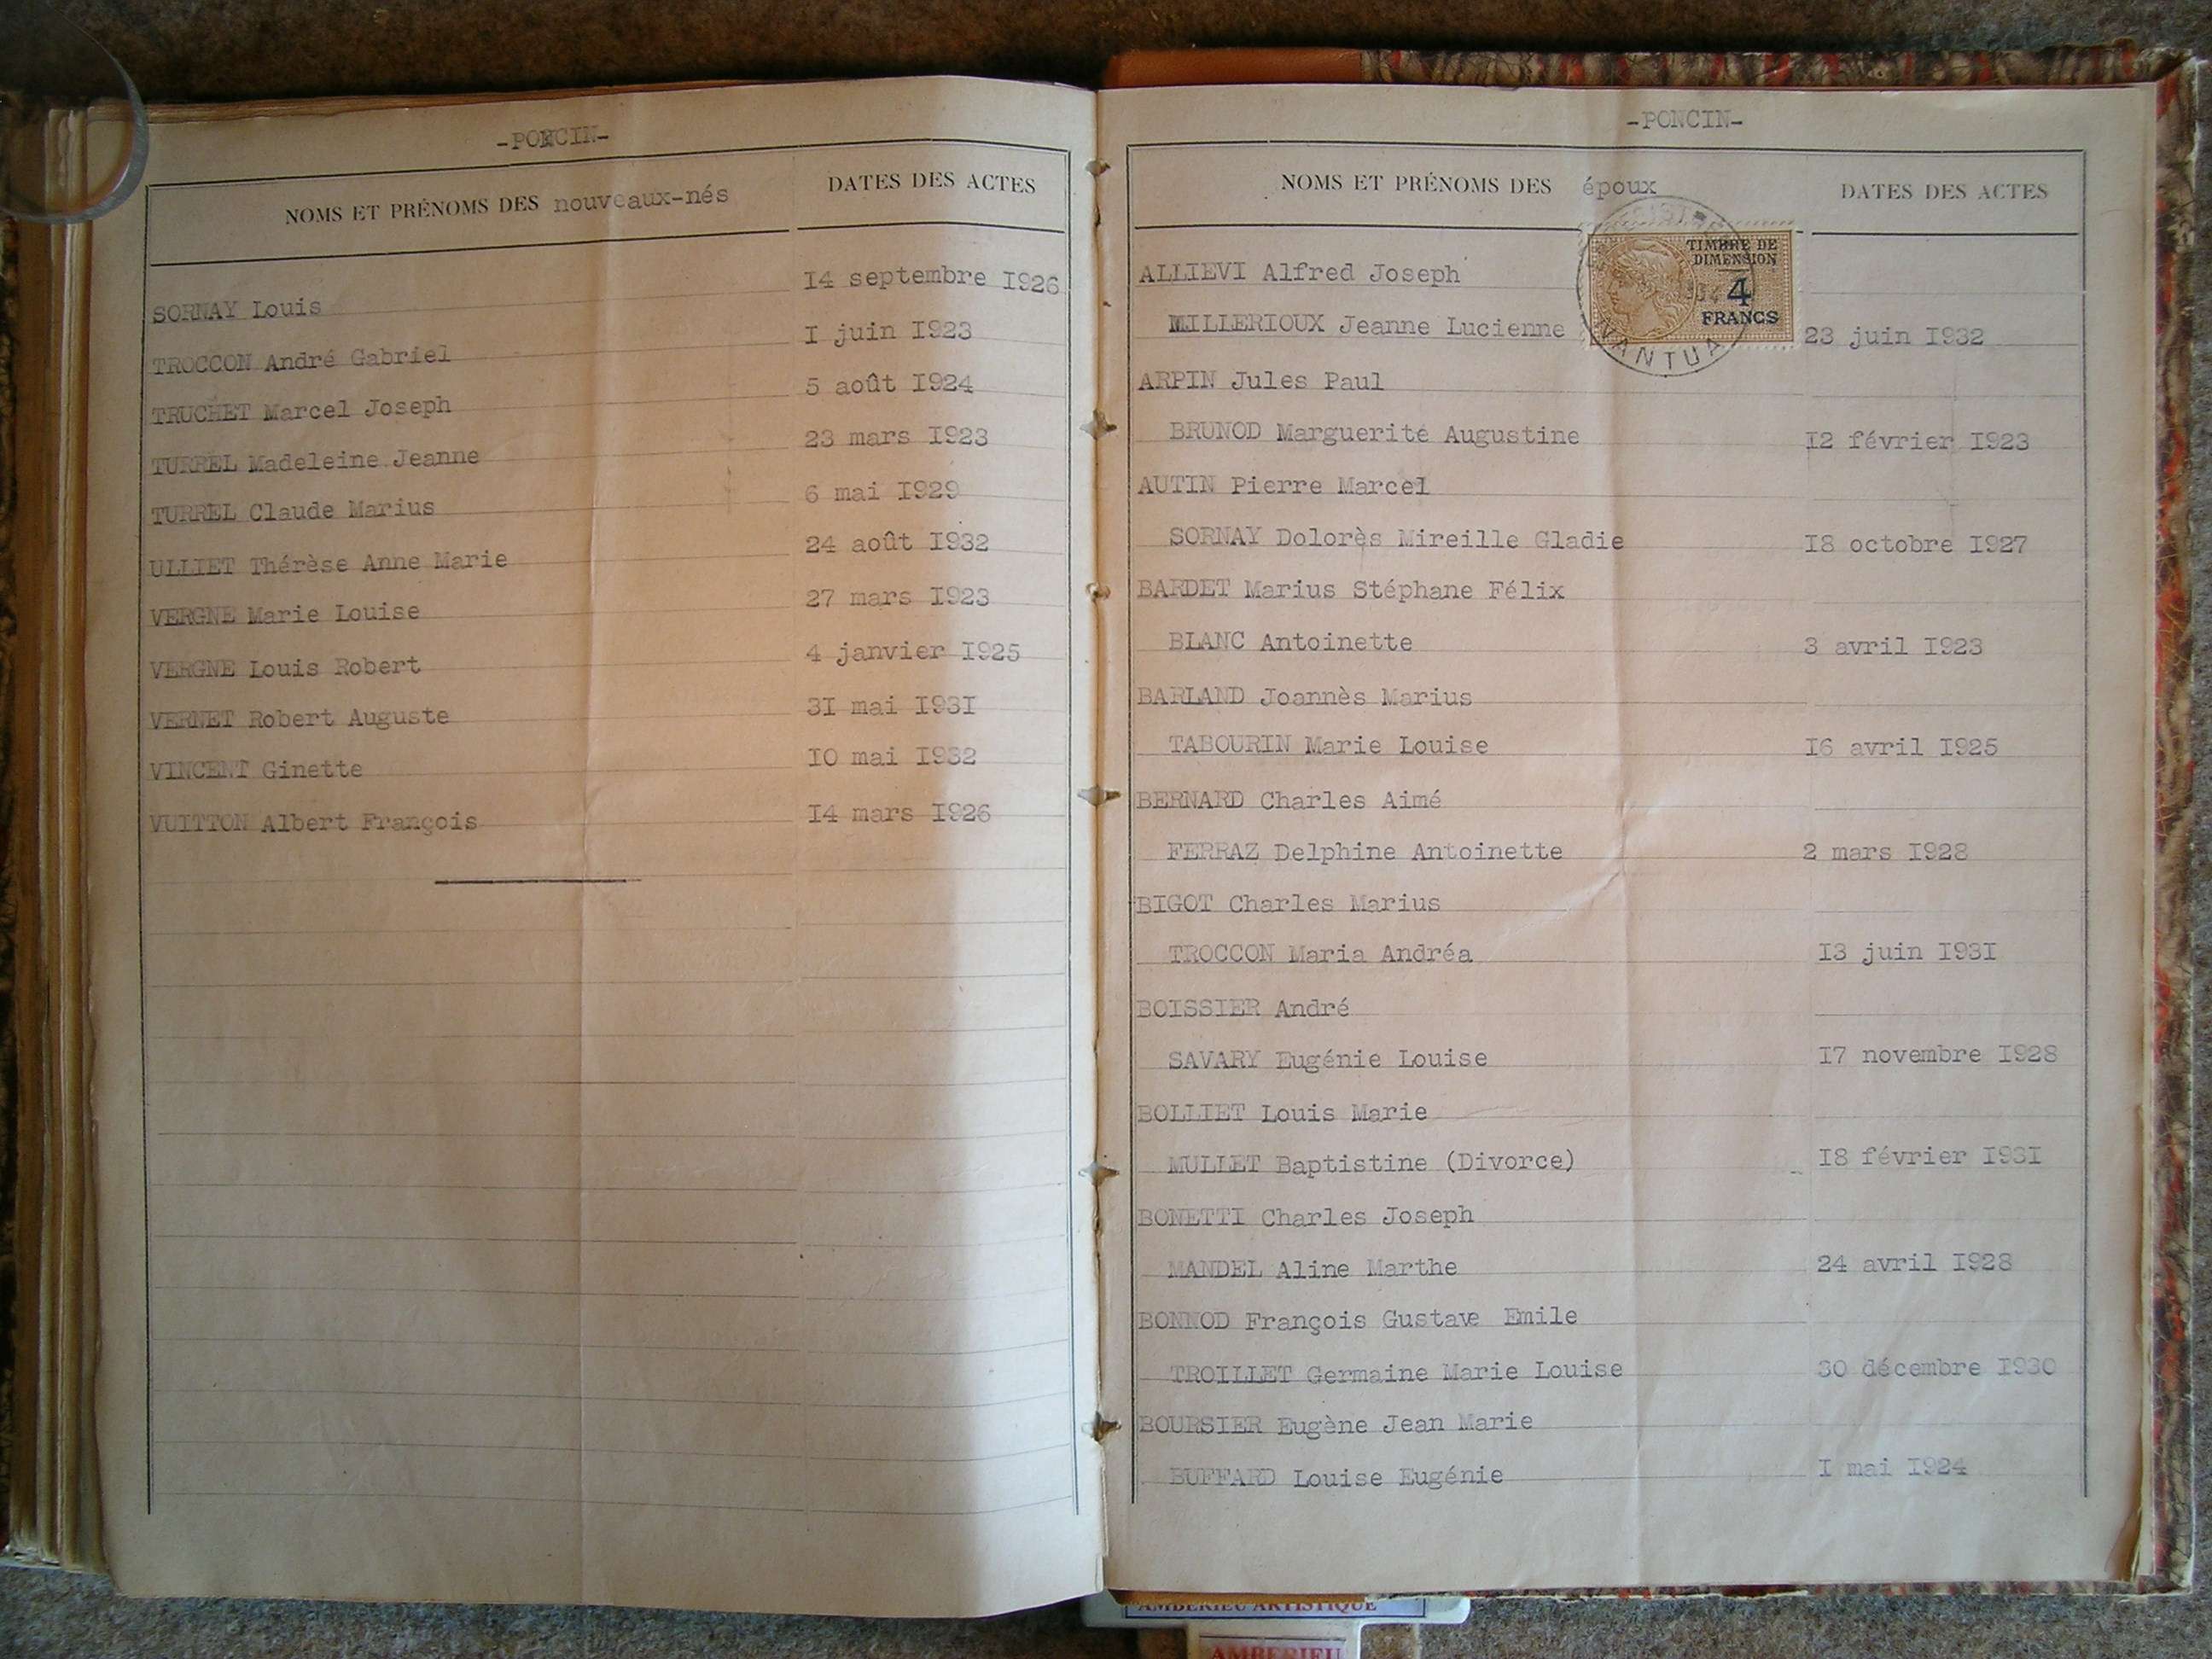 -PONCIN-
NOMS ET PRÉNOMS DES nouveaux-nés
DATES DES ACTES
SORNAY Louis 14 septembre I926
TROCCON André Gabriel I juin I923
TRUCHET Marcel Joseph 5 août I924
TURREL Madeleine Jeanne 23 mars I923
TURREL Claude Marius 6 mai I929
ULLIET Thérèse Anne Marie 24 août I932
VERGNE Marie Louise 27 mars I923
VERGNE Louis Robert 4 janvier I925
VERNET Robert Auguste 3I mai I93I
VINCENT Ginette IO mai I932
VUITTON Albert François I4 mars I926
-PONCIN-
NOMS ET PRÉNOMS DES époux
DATES DES ACTES
TIMBRE DE
DIMENSION
4
FRANCS
NANTUA
ALLIEVI Alfred Joseph
MILLERIOUX Jeanne Lucienne 23 juin I932
ARPIN Jules Paul
BRUNOD Marguerite Augustine I2 février I923
AUTIN Pierre Marcel
SORNAY Dolorès Mireille Gladie I8 octobre I927
BARDET Marius Stéphane Félix
BLANC Antoinette 3 avril I923
BARLAND Joannès Marius
TABOURIN Marie Louise I6 avril I925
BERNARD Charles Aimé
FERRAZ Delphine Antoinette 2 mars I928
BIGOT Charles Marius
TROCCON Maria Andréa I3 juin I93I
BOISSIER André
SAVARY Eugénie Louise I7 novembre I928
BOLLIET Louis Marie
MULLET Baptistine (Divorce) I8 février I93I
BONETTI Charles Joseph
MANDEL Aline Marthe 24 avril I928
BONNOD François Gustave Emile
TROILLET Germaine Marie Louise 30 décembre I930
BOURSIER Eugène Jean Marie
BUFFARD Louise Eugénie I mai I924
AMBERIEU ARTISTIQUE
AMBERIEU